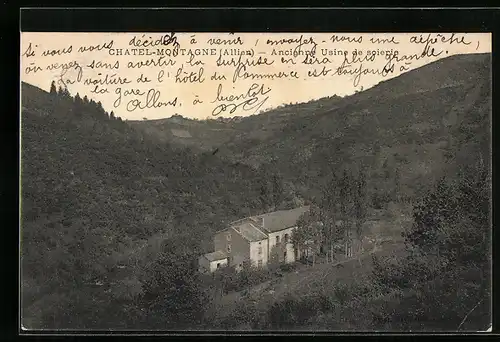 Si vous vous décidez à venir, envoyez-nous une dépêche,
CHATEL-MONTAGNE (Allier) — Ancienne Usine de soierie
ou venez sans avertir, la surprise en sera plus grande
la voiture de l'hôtel du Commerce est toujours à
la gare. Allons, à bientôt